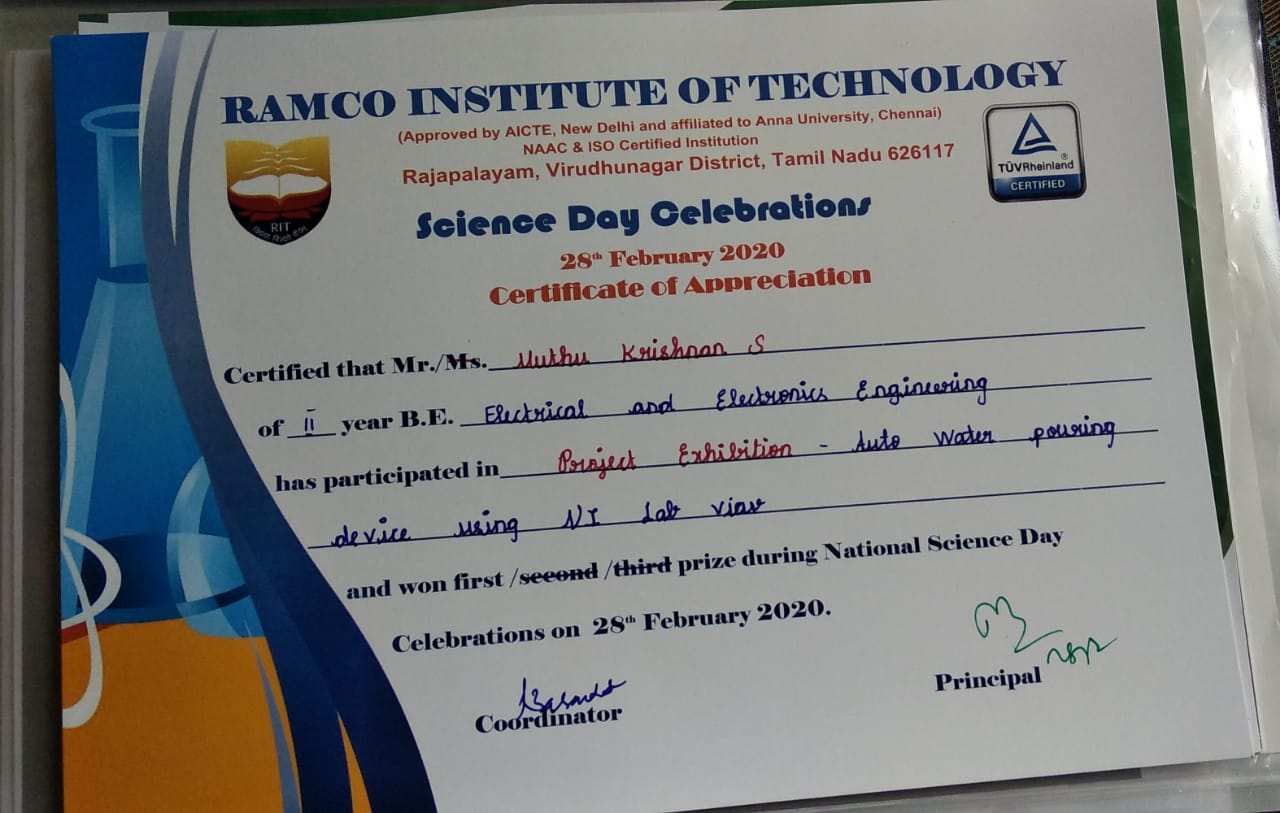 RAMCO INSTITUTE OF TECHNOLOGY
(Approved by AICTE, New Delhi and affiliated to Anna University, Chennai)
NAAC & ISO Certified Institution
Rajapalayam, Virudhunagar District, Tamil Nadu 626117
RIT
TÜVRheinland®
CERTIFIED
Science Day Celebrations
28th February 2020
Certificate of Appreciation
Certified that Mr./Ms. Muthu Krishnan S
of II year B.E. Electrical and Electronics Engineering
has participated in Project Exhibition - Auto Water pouring
device using NI Lab view
and won first /second /third prize during National Science Day
Celebrations on 28th February 2020.
Coordinator
Principal